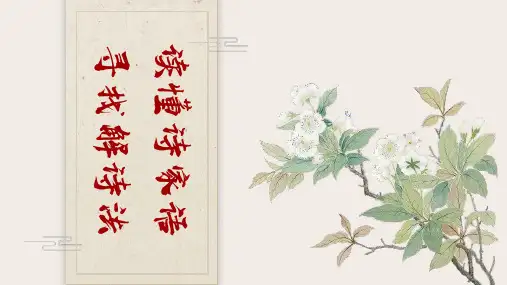 读懂诗家语
寻找解诗法